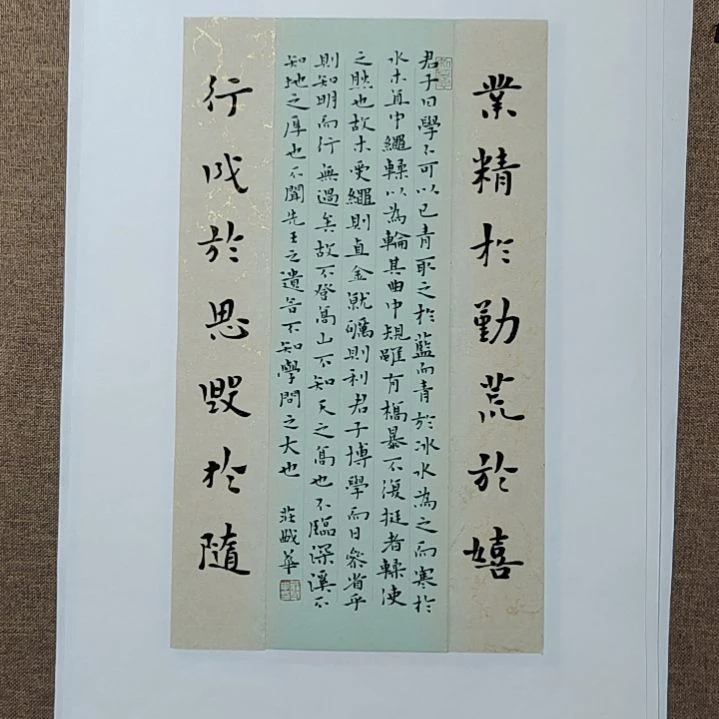 業精於勤荒於嬉
君子曰學不可以已青取之於藍而青於冰水為之而寒於
水木直中繩輮以為輪其曲中規雖有槁暴不復挺者輮使
之然也故木受繩則直金就礪則利君子博學而日參省乎
則知明而行無過矣故不登高山不知天之高也不臨深溪不
知地之厚也不聞先王之遺言不知學問之大也 莊華
行成於思毀於隨